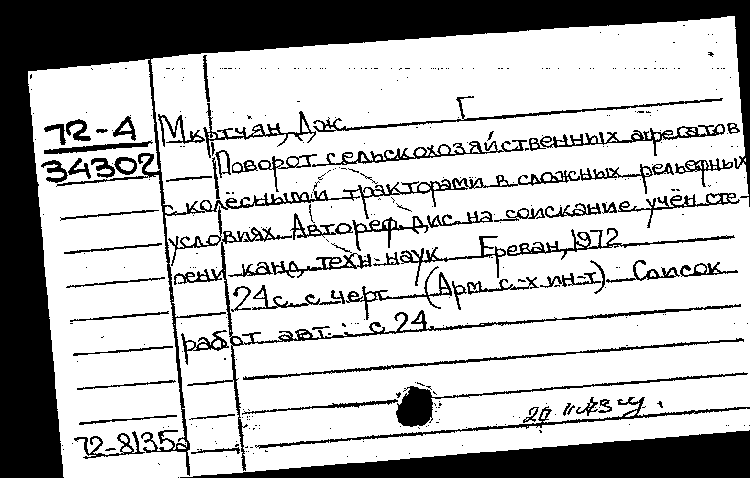 72-А
34302
Мкртчян, Дж. Г
Поворот сельскохозяйственных агрегатов
с колёсными тракторами в сложных рельефных
условиях. Автореф. дис. на соискание учён. сте-
пени канд. техн. наук. Ереван, 1972.
24 с. с черт. (Арм. с-х ин-т). Список
работ авт.: с 24.
72-8135а